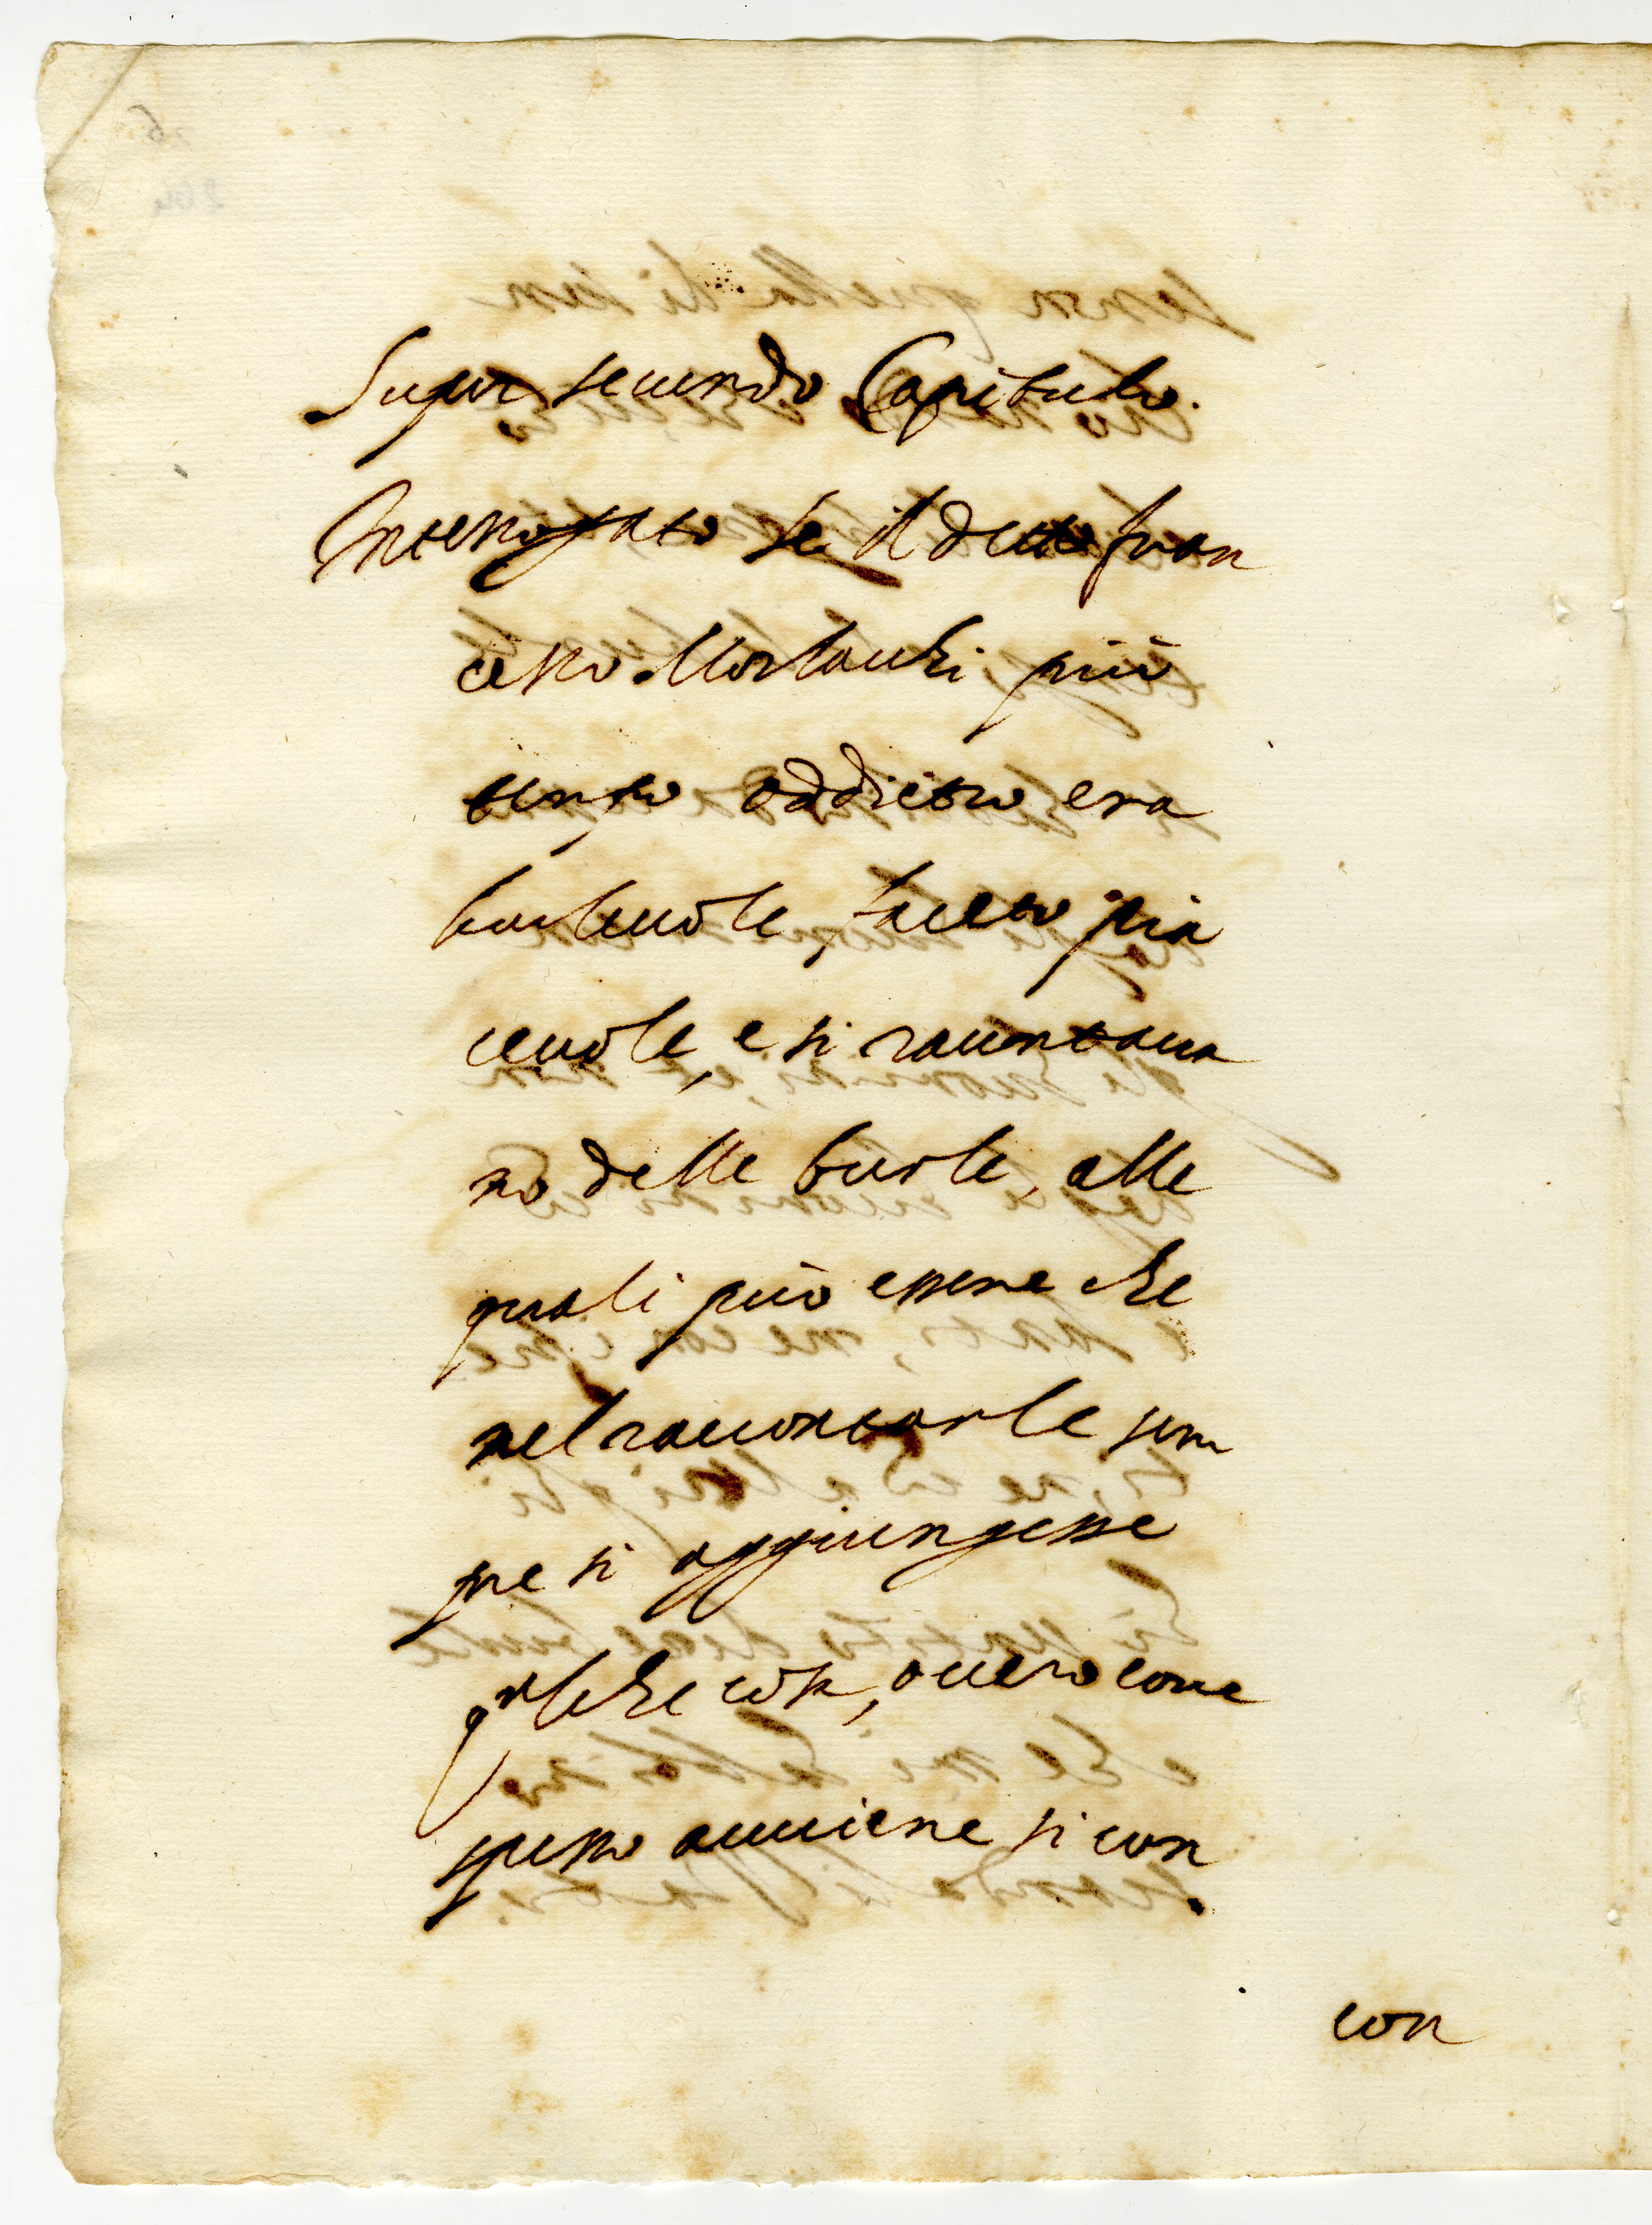 Super secundo Capitulo.
Interrogato se il detto fran
cesco Morlacchi più
tempo addietro era
burleuole, faceto pia
ceuole, e si raccontaua
no delle burle, alle
quali può essere che
nel raccontarle sem
pre si aggiungesse
qualche cosa, ouero come
spesso auuiene si con
con